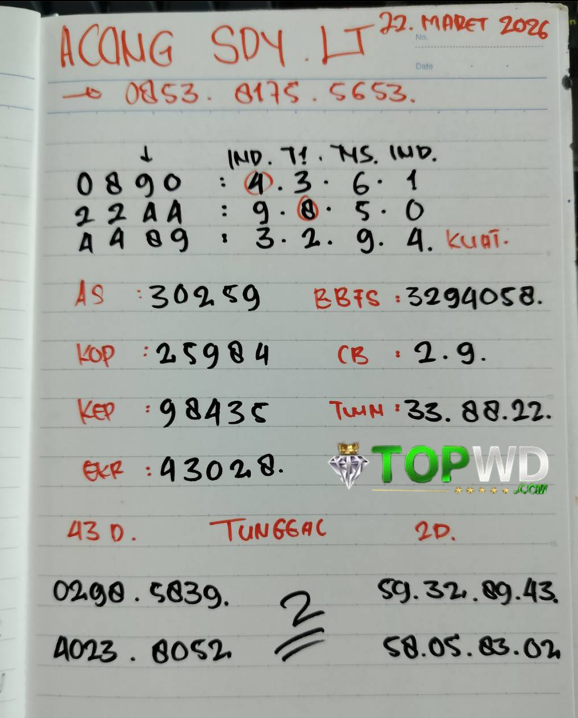 ACONG SDY. LT 22. MARET 2026
No.
Date
→ 0853. 8175. 5653.
↓ IND. TI. MS. IND.
0890 : 4. 3. 6. 1
2244 : 9. 8. 5. 0
4489 : 3. 2. 9. 4. KUAT.
AS : 30259 BBFS : 3294058.
KOP : 25984 CB : 2. 9.
KEP : 98435 TWIN : 33. 88. 22.
EKR : 43028.
TOPWD
.COM
43D. TUNGGAL 2D.
0298. 5839. 2 59. 32. 89. 43.
4023. 8052 58. 05. 83. 02